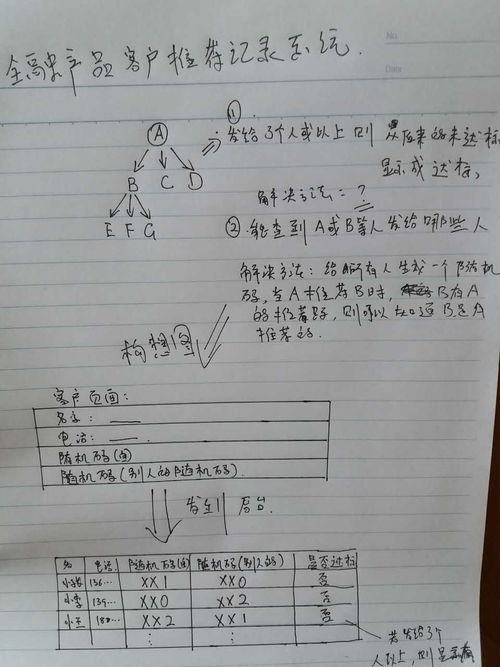 No.
Date
金融产品客户推荐记录系统.
①
A
发给3个人或以上则 从原来的未达标
显示成达标,
B C D
解决方法=?
E F G
②能查到A或B等人发给哪些人
解决方法:给所有人生成一个随机
码,在A推荐B时, B有A
的推荐码,则可以知道B是A
推荐的.
构想图
客户页面:
名字:
电话:
随机码(自)
随机码(别人的随机码).
发到 后台.
名 电话 随机码(自) 随机码(别人的) 是否达标
小张 136... XX1 XX0 否
小李 139... XX0 XX2 否
小王 188... XX2 XX1 否
若发给3个
人以上,则显